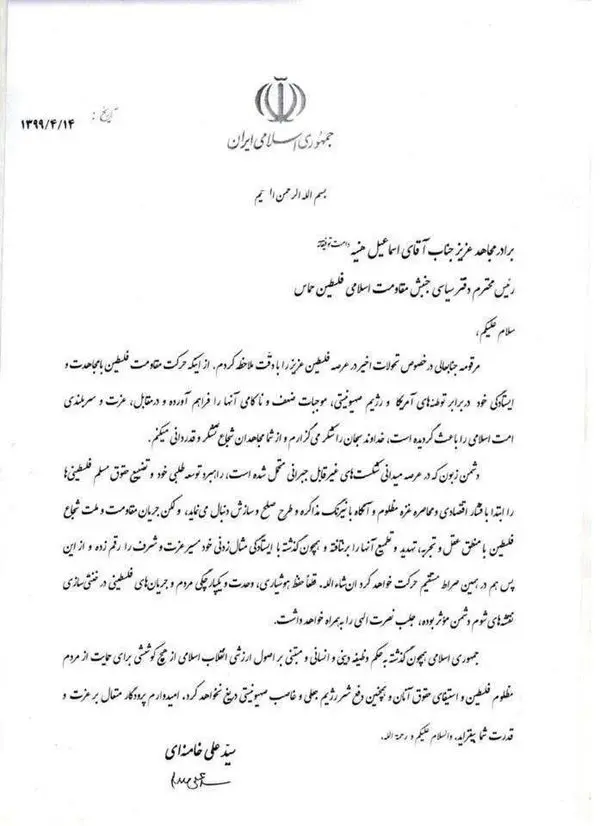 تاریخ :
۱۳۹۹/۴/۱۴
جمهوری اسلامی ایران
بسم الله الرحمن الرحیم
برادر مجاهد عزیز جناب آقای اسماعیل هنیه دامت توفیقاته
رئیس محترم دفتر سیاسی جنبش مقاومت اسلامی فلسطین حماس
سلام علیکم،
مرقومه جنابعالی در خصوص تحولات اخیر در عرصه فلسطین عزیز را با دقّت ملاحظه کردم. از اینکه حرکت مقاومت فلسطین با مجاهدت و
ایستادگی خود در برابر توطئه‌های آمریکا و رژیم صهیونیستی، موجبات ضعف و ناکامی آنها را فراهم آورده و در مقابل، عزت و سربلندی
امت اسلامی را باعث گردیده است، خداوند سبحان را شکر می‌گزارم و از شما مجاهدان شجاع تشکر و قدردانی میکنم.
دشمن زبون که در عرصه میدانی شکست‌های غیرقابل جبرانی متحمل شده است، راهبرد توسعه طلبی خود و تضییع حقوق مسلم فلسطینی‌ها
را ابتدا با فشار اقتصادی و محاصره غزه مظلوم و آنگاه با نیرنگ مذاکره و طرح صلح و سازش دنبال می‌نماید، و لکن جریان مقاومت و ملت شجاع
فلسطین با منطق عقل و تجربه، تهدید و تطمیع آنها را برنتافته و همچون گذشته با ایستادگی مثال زدنی خود مسیر عزت و شرف را رقم زده و از این
پس هم در همین صراط مستقیم حرکت خواهد کرد ان‌شاءالله. قطعاً حفظ هوشیاری، وحدت و یکپارچگی مردم و جریان‌های فلسطینی در خنثی‌سازی
نقشه‌های شوم دشمن مؤثر بوده، جلب نصرت الهی را بهمراه خواهد داشت.
جمهوری اسلامی همچون گذشته به حکم وظیفه دینی و انسانی و مبتنی بر اصول ارزشی انقلاب اسلامی از هیچ کوششی برای حمایت از مردم
مظلوم فلسطین و استیفای حقوق آنان و همچنین دفع شر رژیم جعلی و غاصب صهیونیستی دریغ نخواهد کرد. امیدوارم پروردگار متعال بر عزت و
قدرت شما بیفزاید. والسلام علیکم و رحمة الله.
سیّد علی خامنه‌ای